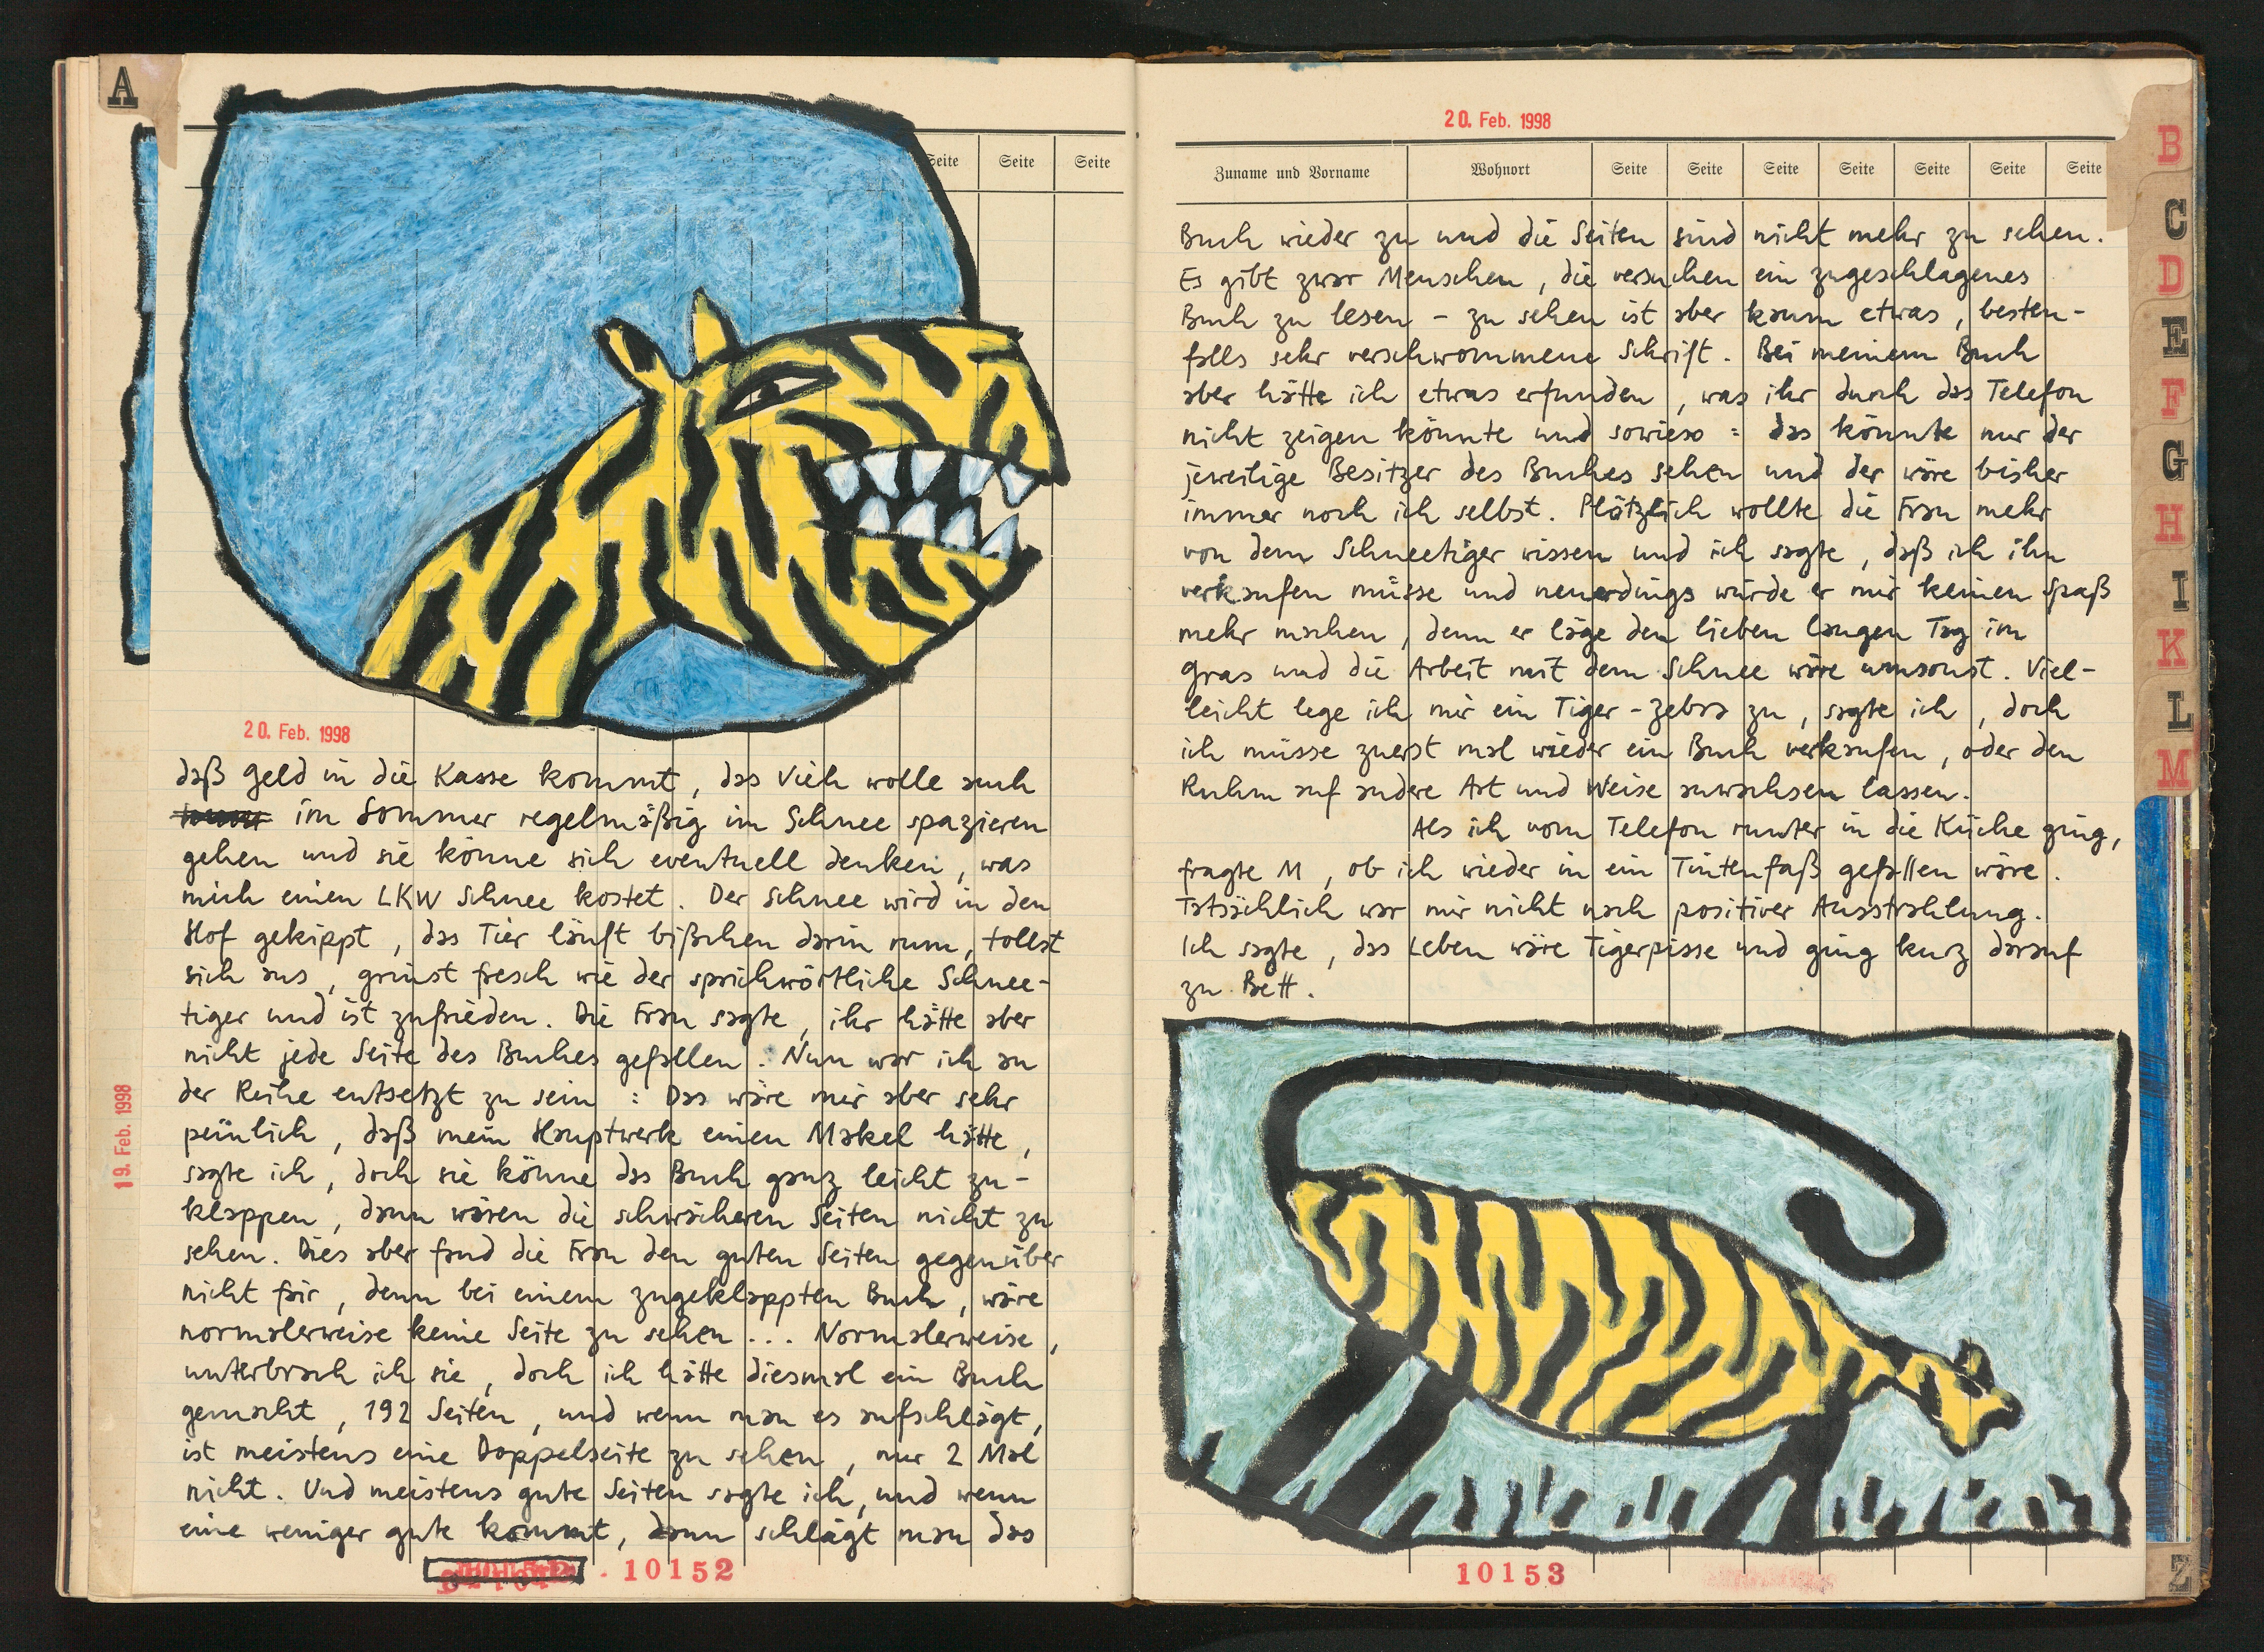 A
Seite Seite Seite
20. Feb. 1998
daß Geld in die Kasse kommt, das Vieh wolle auch
im Sommer regelmäßig im Schnee spazieren
gehen und sie könne sich eventuell denken, was
mich einen LKW Schnee kostet. Der Schnee wird in den
Hof gekippt, das Tier läuft bißchen darin rum, tollst
sich aus, grinst frech wie der sprichwörtliche Schnee-
tiger und ist zufrieden. Die Frau sagte, ihr hätte aber
nicht jede Seite des Buches gefallen. Nun war ich an
der Reihe entsetzt zu sein: Das wäre mir aber sehr
peinlich, daß mein Hauptwerk einen Makel hätte,
sagte ich, doch sie könne das Buch ganz leicht zu-
klappen, dann wären die schwächeren Seiten nicht zu
sehen. Dies aber fand die Frau den guten Seiten gegenüber
nicht fair, denn bei einem zugeklappten Buch, wäre
normalerweise keine Seite zu sehen... Normalerweise,
unterbrach ich sie, doch ich hätte diesmal ein Buch
gemacht, 192 Seiten, und wenn man es aufschlägt,
ist meistens eine Doppelseite zu sehen, nur 2 Mal
nicht. Und meistens gute Seiten sagte ich, und wenn
eine weniger gute kommt, dann schlägt man das
19. Feb. 1998
10152
20. Feb. 1998
Zuname und Vorname Wohnort Seite Seite Seite Seite Seite Seite Seite
Buch wieder zu und die Seiten sind nicht mehr zu sehen.
Es gibt zwar Menschen, die versuchen ein zugeschlagenes
Buch zu lesen - zu sehen ist aber kaum etwas, besten-
falls sehr verschwommene Schrift. Bei meinem Buch
aber hätte ich etwas erfunden, was ihr durch das Telefon
nicht zeigen könnte und sowieso: das könnte nur der
jeweilige Besitzer des Buches sehen und der wäre bisher
immer noch ich selbst. Plötzlich wollte die Frau mehr
von dem Schneetiger wissen und ich sagte, daß ich ihn
verkaufen müsse und neuerdings würde er mir keinen Spaß
mehr machen, denn er läge den lieben langen Tag im
Gras und die Arbeit mit dem Schnee wäre umsonst. Viel-
leicht lege ich mir ein Tiger-Zebra zu, sagte ich, doch
ich müsse zuerst mal wieder ein Buch verkaufen, oder den
Ruhm auf andere Art und Weise anwachsen lassen.
Als ich vom Telefon runter in die Küche ging,
fragte M, ob ich wieder in ein Tintenfaß gefallen wäre.
Tatsächlich war mir nicht nach positiver Ausstrahlung.
Ich sagte, das Leben wäre Tigerpisse und ging kurz darauf
zu Bett.
10153
B
C
D
E
F
G
H
I
K
L
M
Z